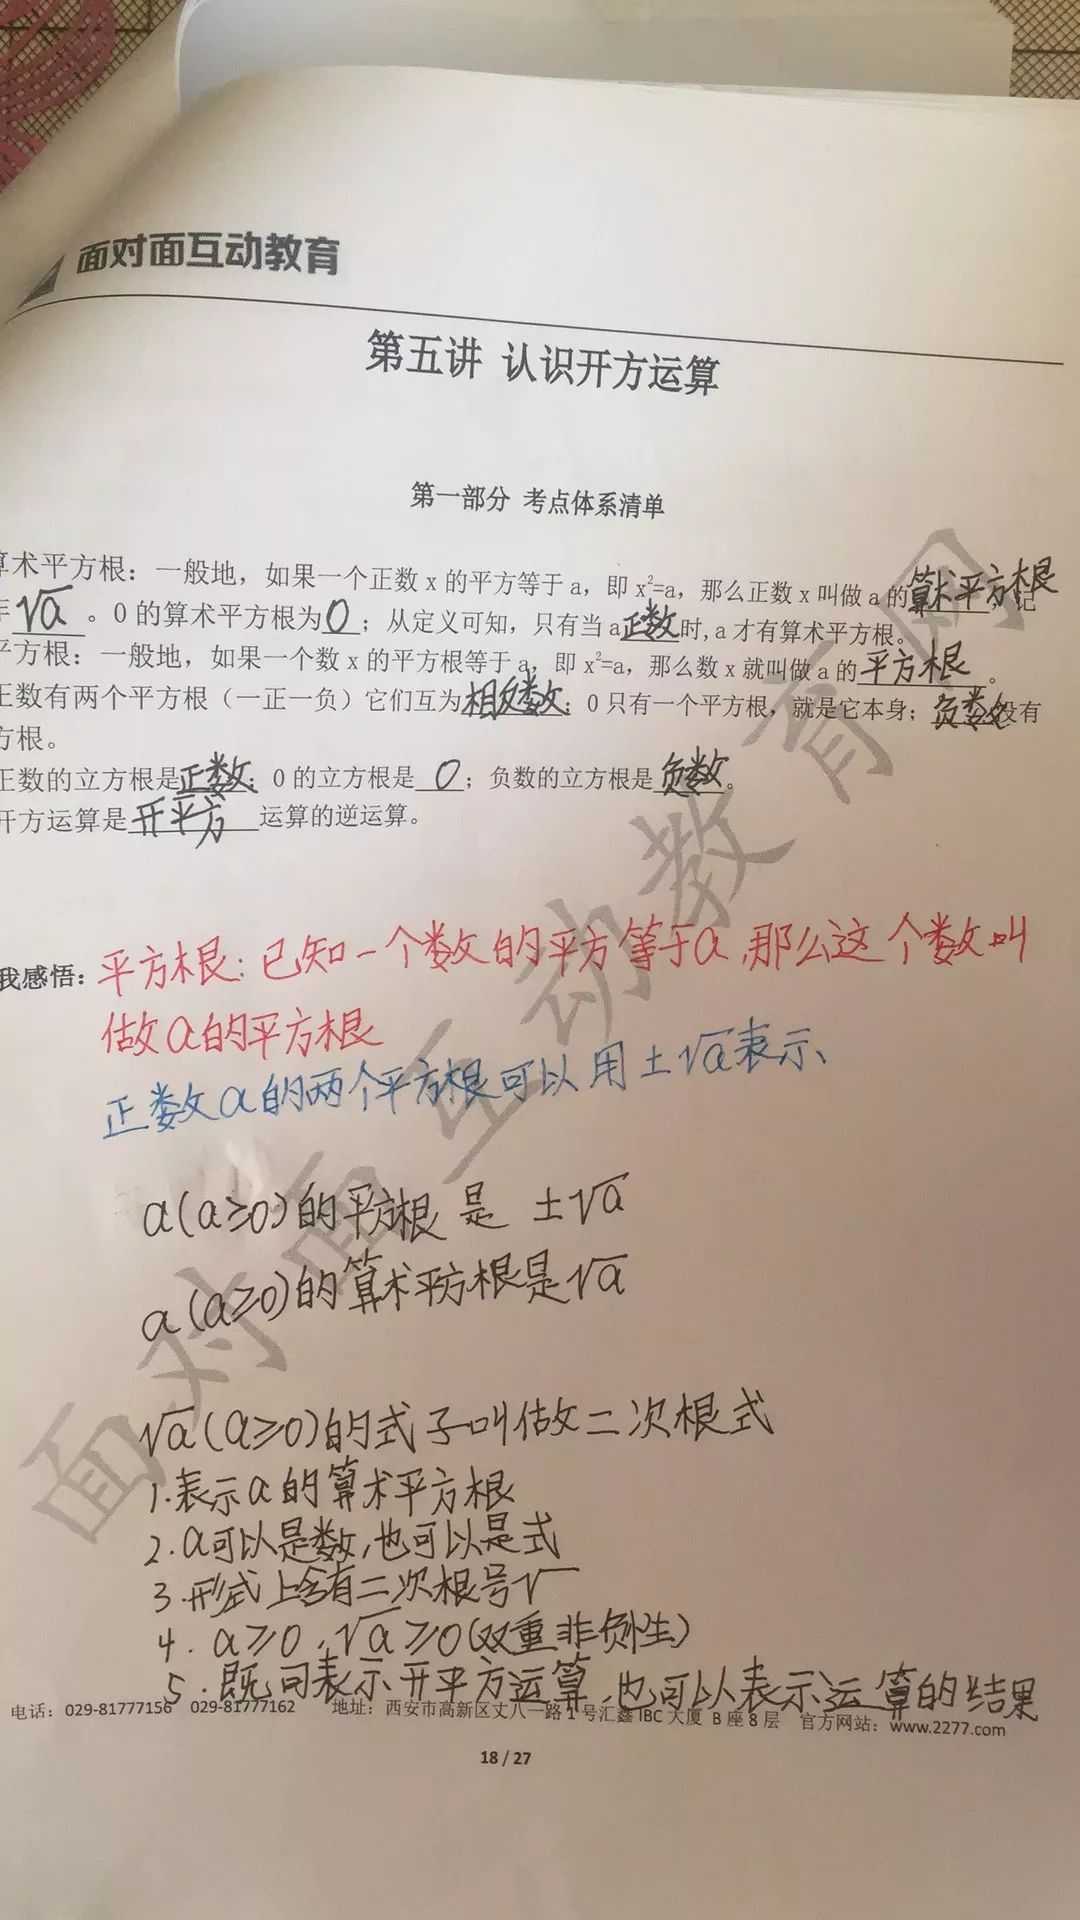 面对面互动教育
第五讲 认识开方运算
第一部分 考点体系清单
算术平方根：一般地，如果一个正数 x 的平方等于 a，即 x²=a，那么正数 x 叫做 a 的算术平方根 记
作√a 。0 的算术平方根为 0 ；从定义可知，只有当 a 正数 时,a 才有算术平方根。
平方根：一般地，如果一个数 x 的平方根等于 a，即 x²=a，那么数 x 就叫做 a 的 平方根 。
正数有两个平方根（一正一负）它们互为 相反数 ；0 只有一个平方根，就是它本身；负数 没有
方根。
正数的立方根是 正数 ；0 的立方根是 0 ；负数的立方根是 负数 。
开方运算是 开平方 运算的逆运算。
我感悟：平方根：已知一个数的平方等于a,那么这个数叫
做a的平方根
正数a的两个平方根可以用±√a表示、
a(a≥0)的平方根是 ±√a
a(a≥0)的算术平方根是√a
√a(a≥0)的式子叫做二次根式
1.表示a的算术平方根
2.a可以是数,也可以是式
3.形式上含有二次根号√
4. a≥0,√a≥0(双重非负性)
5.既可表示开平方运算,也可以表示运算的结果
电话：029-81777156 029-81777162 地址：西安市高新区丈八一路 1 号汇鑫 IBC 大厦 B 座 8 层 官方网站：www.2277.com
18 / 27
面对面互动教育网